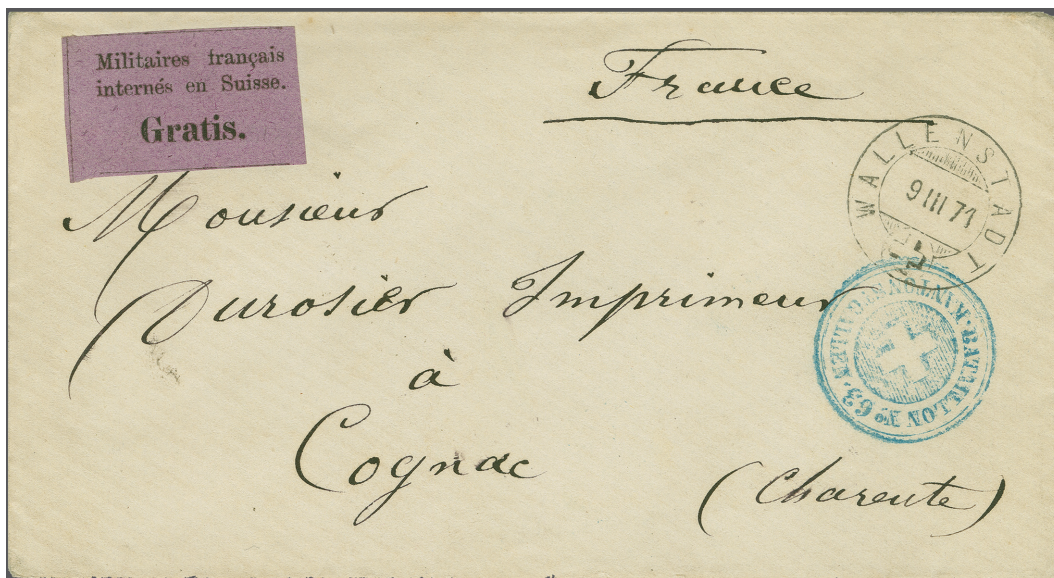 Militaires français
internés en Suisse.
Gratis.
France
WALLENSTADT
9 III 71
Monsieur
Durosier Imprimeur
à
Cognac
(Charente)
BATAILLON No 63